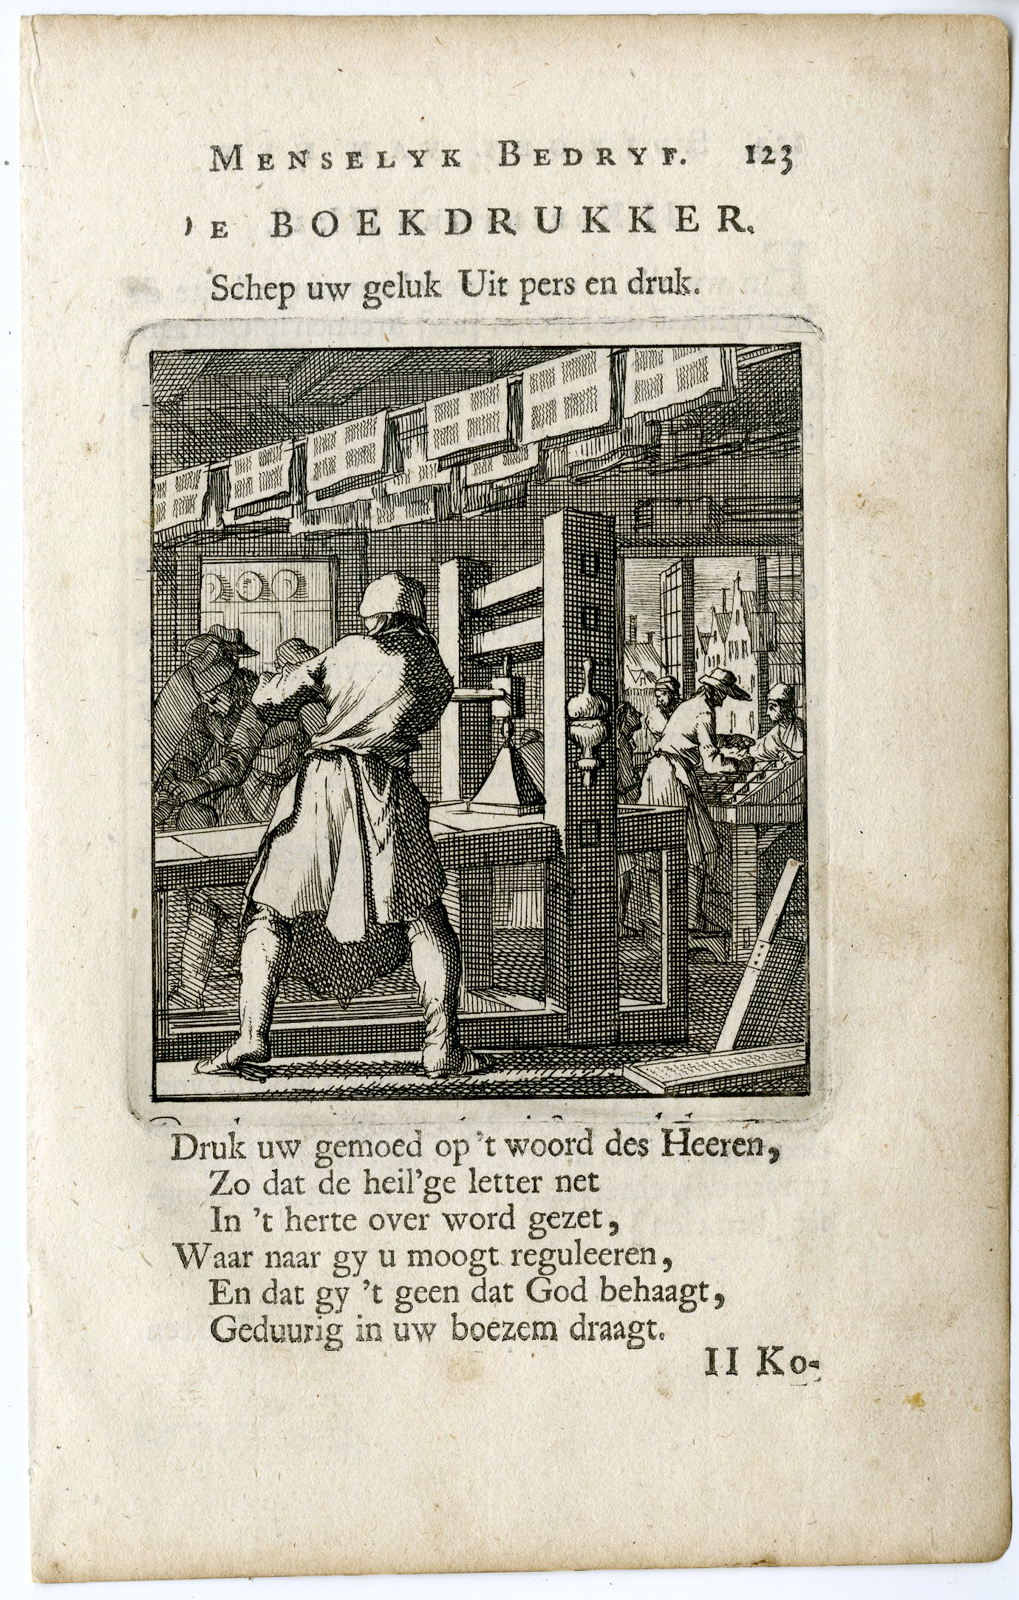 MENSELYK BEDRYF. 123
DE BOEKDRUKKER.
Schep uw geluk Uit pers en druk.
Druk uw gemoed op 't woord des Heeren,
Zo dat de heil'ge letter net
In 't herte over word gezet,
Waar naar gy u moogt reguleeren,
En dat gy 't geen dat God behaagt,
Geduurig in uw boezem draagt.
II Ko-